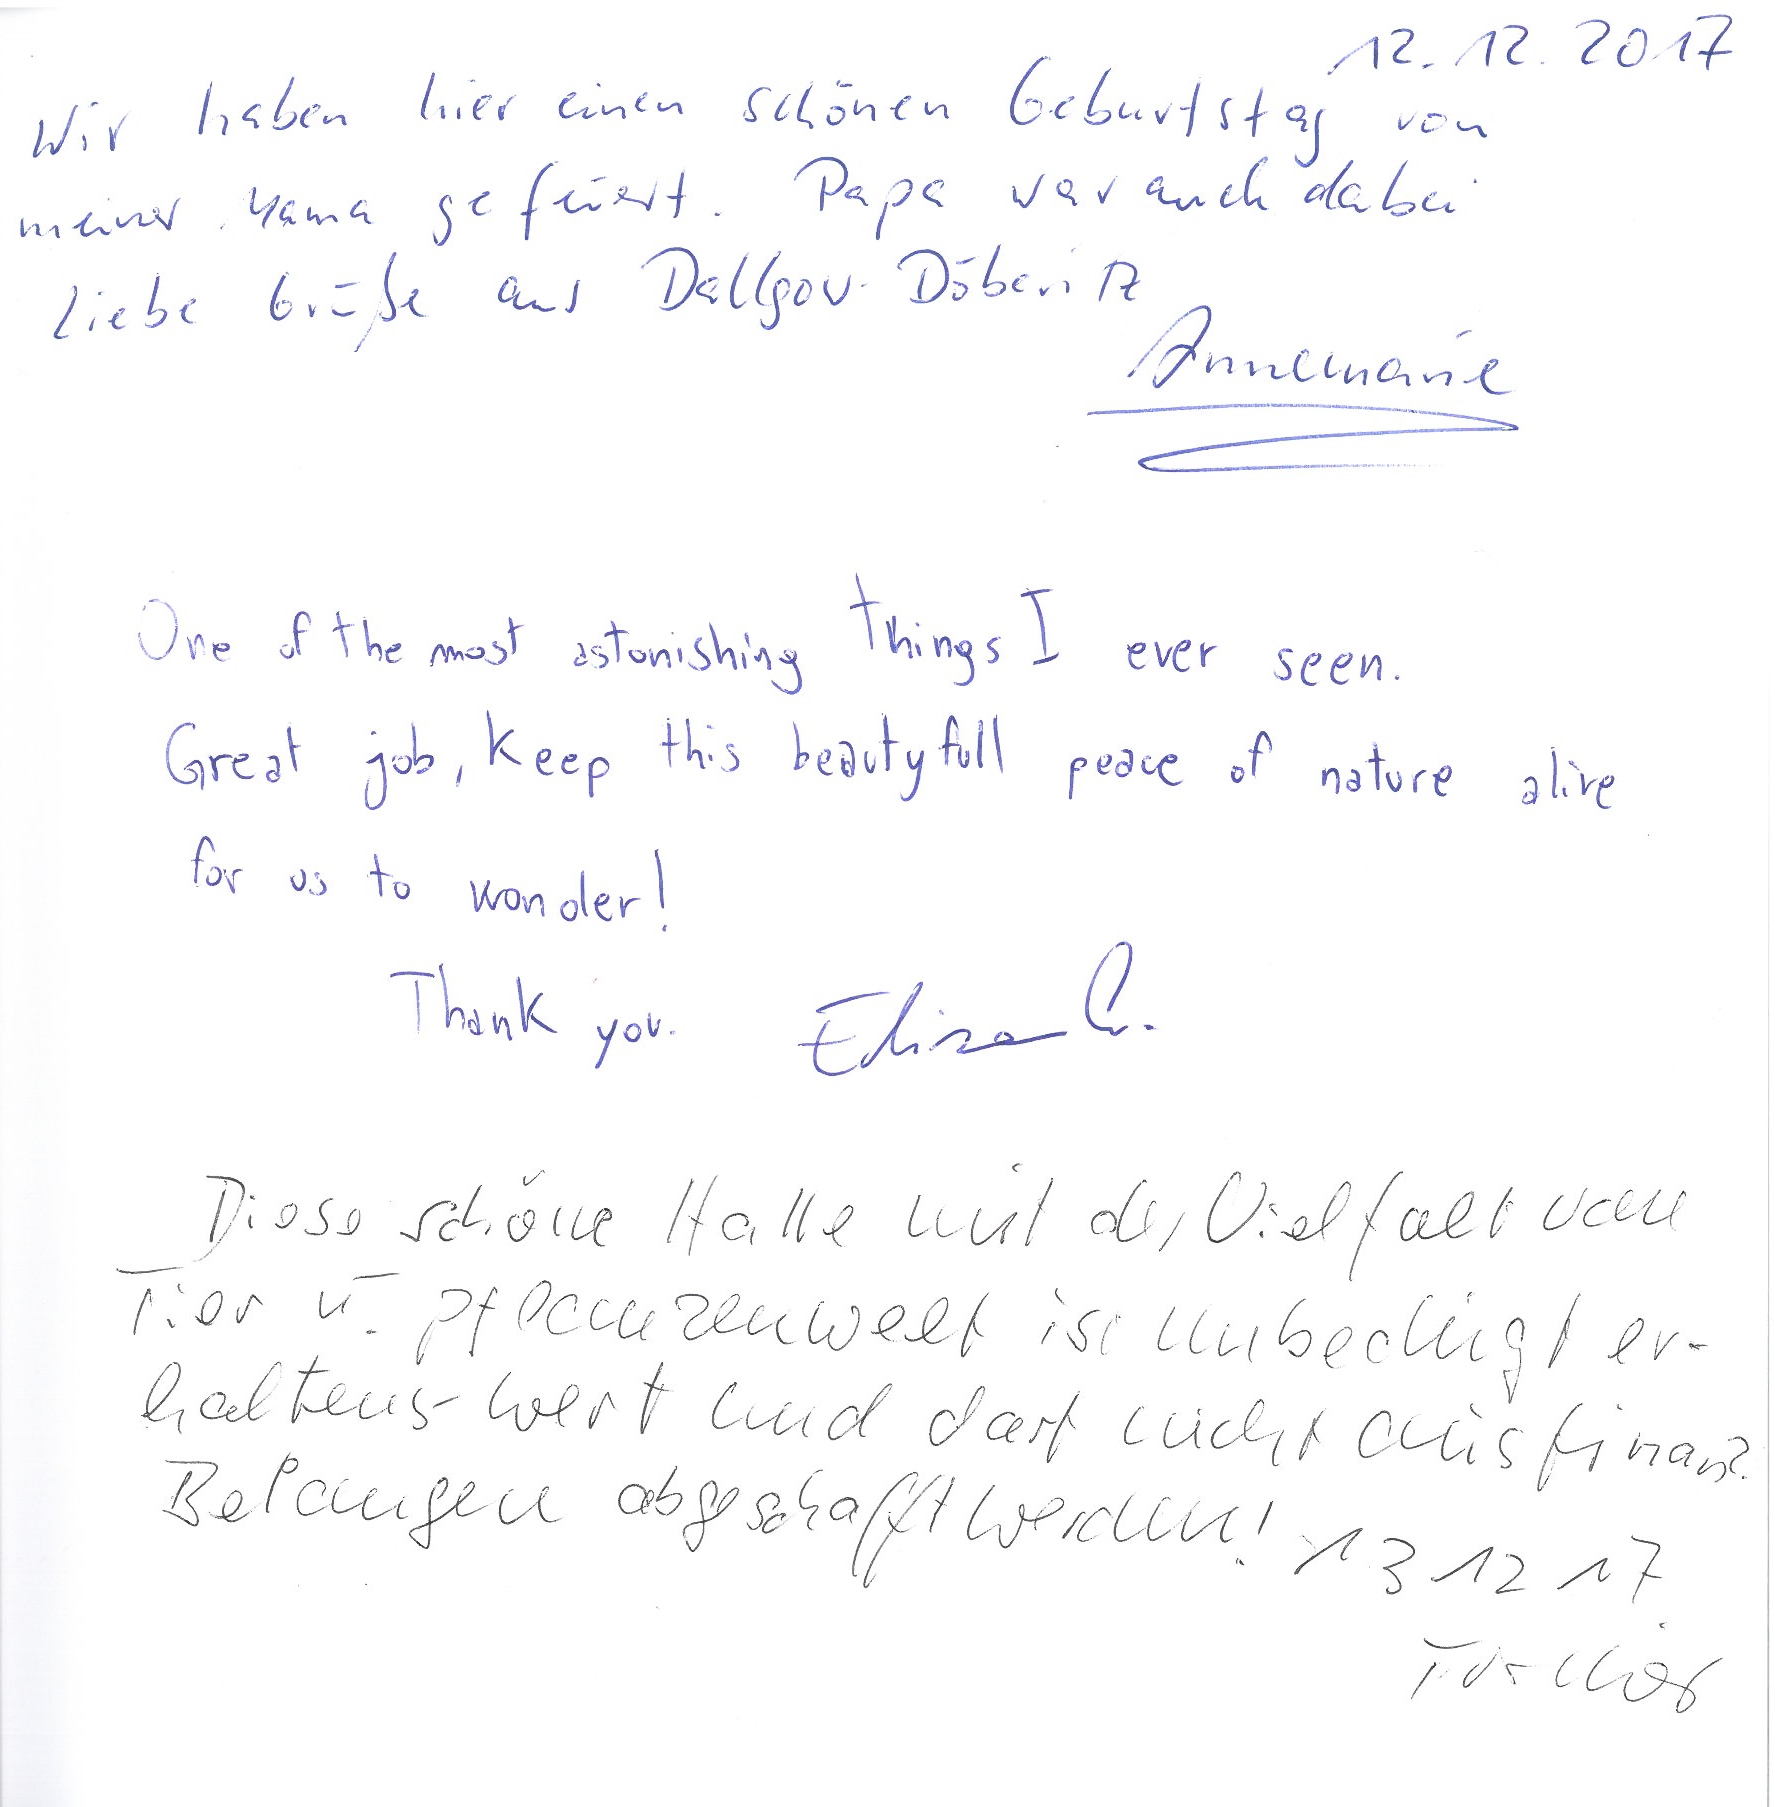 12.12.2017
Wir haben hier einen schönen Geburtstag von
meiner Mama gefeiert. Papa war auch dabei
Liebe Grüße aus Dallgow-Döberitz
Annemarie
One of the most astonishing things I ever seen.
Great job, keep this beautyfull peace of nature alive
for us to wonder!
Thank you. Elisa G.
Diese schöne Halle mit der Vielfalt von
Tier u. Pflanzenwelt ist unbedingt er-
haltens-wert und darf nicht aus finanz.
Belangen abgeschafft werden! 13 12 17